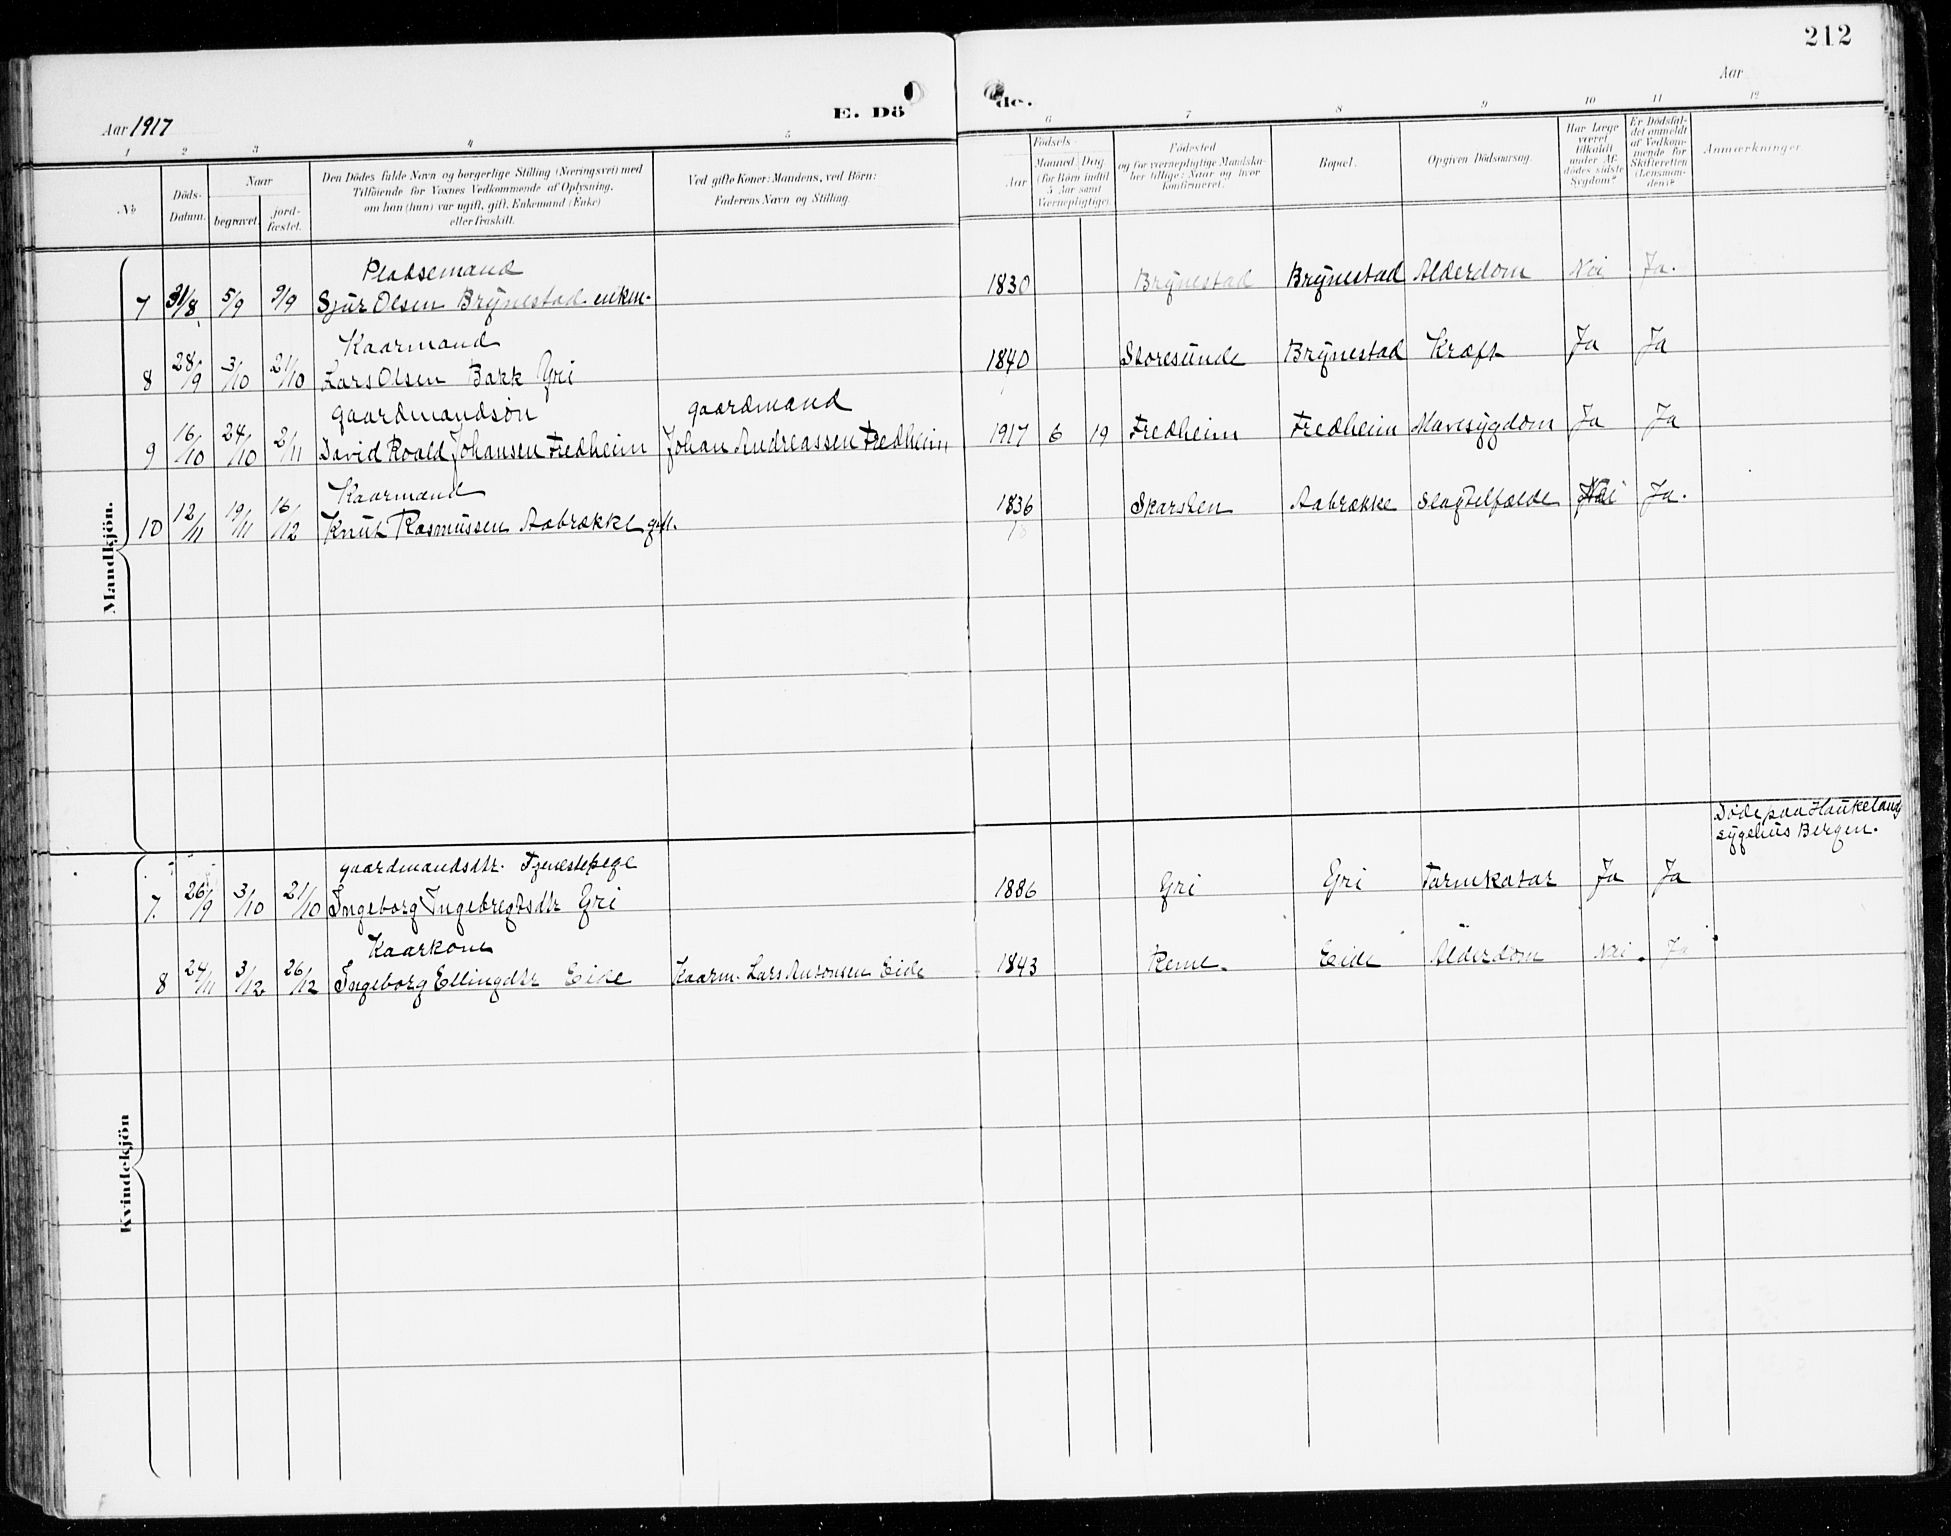 212
Aar 1917
E. Døde.
Aar
1 2 3 4 5 6 7 8 9 10 11 12
No
Døds-Datum.
Naar
begravet.
jord-fæstet.
Den Dødes fulde Navn og borgerlige Stilling (Næringsvei) med
Tilføiende for Voxnes Vedkommende af Oplysning,
om han (hun) var ugift, gift, Enkemand (Enke)
eller fraskilt.
Ved gifte Koner: Mandens, ved Börn:
Faderens Navn og Stilling.
Fødsels-
Aar
Maaned Dag
(for Børn indtil
5 Aar samt
Værnepligtige).
Fødested
og for værnepligtige Mandska-
ber tillige: Naar og hvor
konfirmeret.
Bopæl.
Opgiven Dödsaarsag.
Har Læge
været
tilkaldt
under Af-
dödes sidste
Sygdom?
Er Dödsfal-
det anmeldt
af Vedkom-
mende for
Skifteretten
(Lensman-
den)?
Anmærkninger.
Mandkjön.
Pladsemand
7 31/8 5/9 9/9 Sjur Olsen Brynestad enkem. 1830 Brynestad Brynestad Alderdom Nei Ja.
Kaarmand
8 28/9 3/10 21/10 Lars Olsen Bakk Gri 1840 Storesunde Brynestad Kræft Ja Ja
gaardmandsøn gaardmand
9 16/10 24/10 2/11 David Roald Johansen Fredheim Johan Andreassen Fredheim 1917 6 19 Fredheim Fredheim Mavesygdom Ja Ja
Kaarmand
10 12/11 19/11 16/12 Knut Rasmussen Aabrække gift. 1836 Skarsten Aabrække Slagtilfælde Nei Ja.
Kvindekjön
Døde paa Haukeland
sygehus Bergen.
gaardmandsdtr. Tjenestepige
7. 26/9 3/10 21/10 Ingeborg Ingebregtsdtr Gri 1886 Gri Gri Tarmkatar Ja Ja
Kaarkone
8 24/11 3/12 26/12 Ingeborg Ellingdtr Eide Kaarm. Lars Antonsen Eide 1843 Reme. Eide Alderdom Nei. Ja